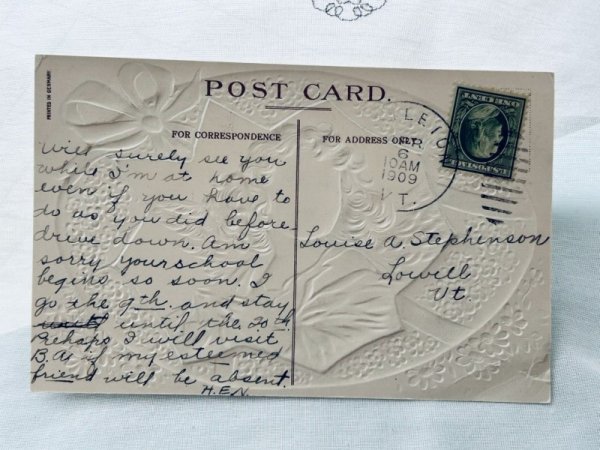 PRINTED IN GERMANY
POST CARD.
FOR CORRESPONDENCE
FOR ADDRESS ONLY
6
10AM
1909
VT.
ONE CENT
Will surely see you
while I'm at home
even if you have to
do as you did before
drive down. Am
sorry your school
begins so soon. I
go the 9th. and stay
until the 20th.
Perhaps I will visit
B.A. if my esteemed
friend will be absent.
H.E.N.
Louise A. Stephenson
Lowell
Vt.